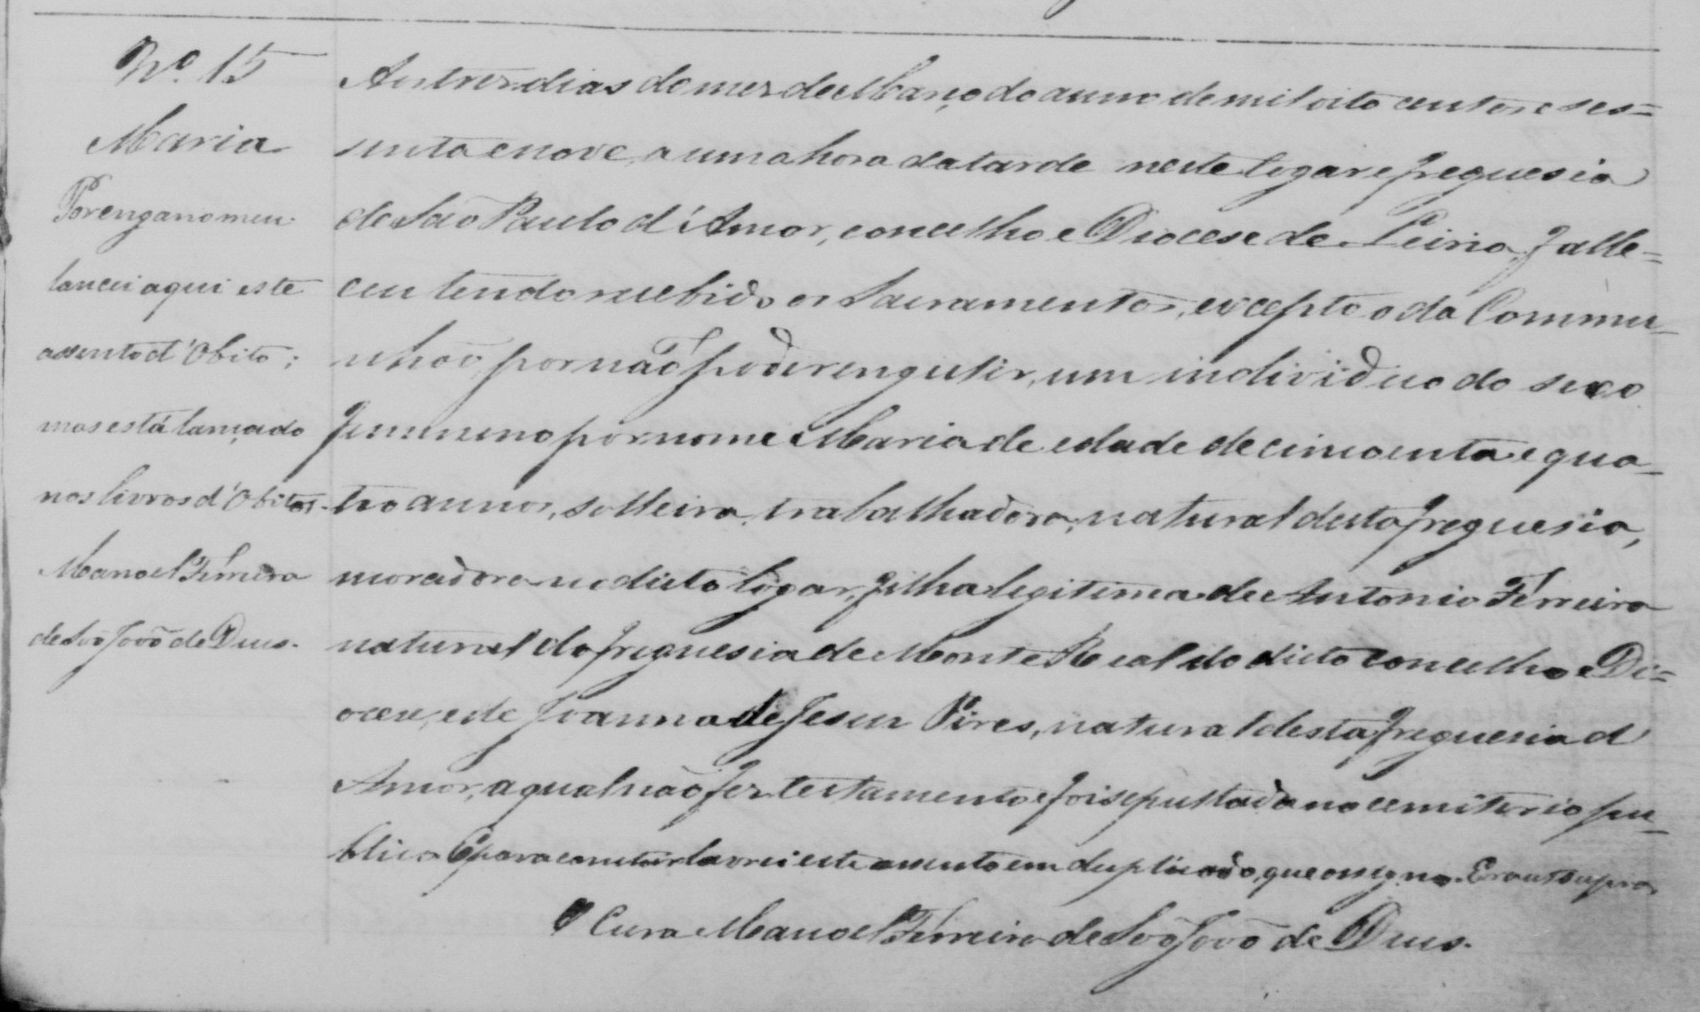 Nº 15
Maria
Por engano meu
lancei aqui este
assento d'Obito;
mas está lançado
nos livros d'Obitos.
Manoel Ferreira
de São João de Deus.
Aos tres dias do mez de Março do anno de mil oito centos e ses=
senta e nove, a uma hora da tarde neste logar e freguesia
de São Paulo d'Amor, concelho e Diocese de Leiria, falle=
ceu tendo recebido os Sacramentos, excepto o da Commu-
nhão, por não poder engulir, um individuo do sexo
femenino por nome Maria de edade de cincoenta e qua-
tro annos, solteira, trabalhadora, natural desta freguesia,
moradora no dicto logar, filha legitima de Antonio Ferreira
natural da freguesia de Monte Real do dicto concelho e Di=
ocese, e de Joanna de Jesus Pires, natural desta freguesia d'
Amor, a qual não fez testamento e foi sepultada no cemiterio pu-
blico. E para constar lavrei este assento em duplicado, que assigno. Era ut supra
O Cura Manoel Ferreira de São João de Deus.